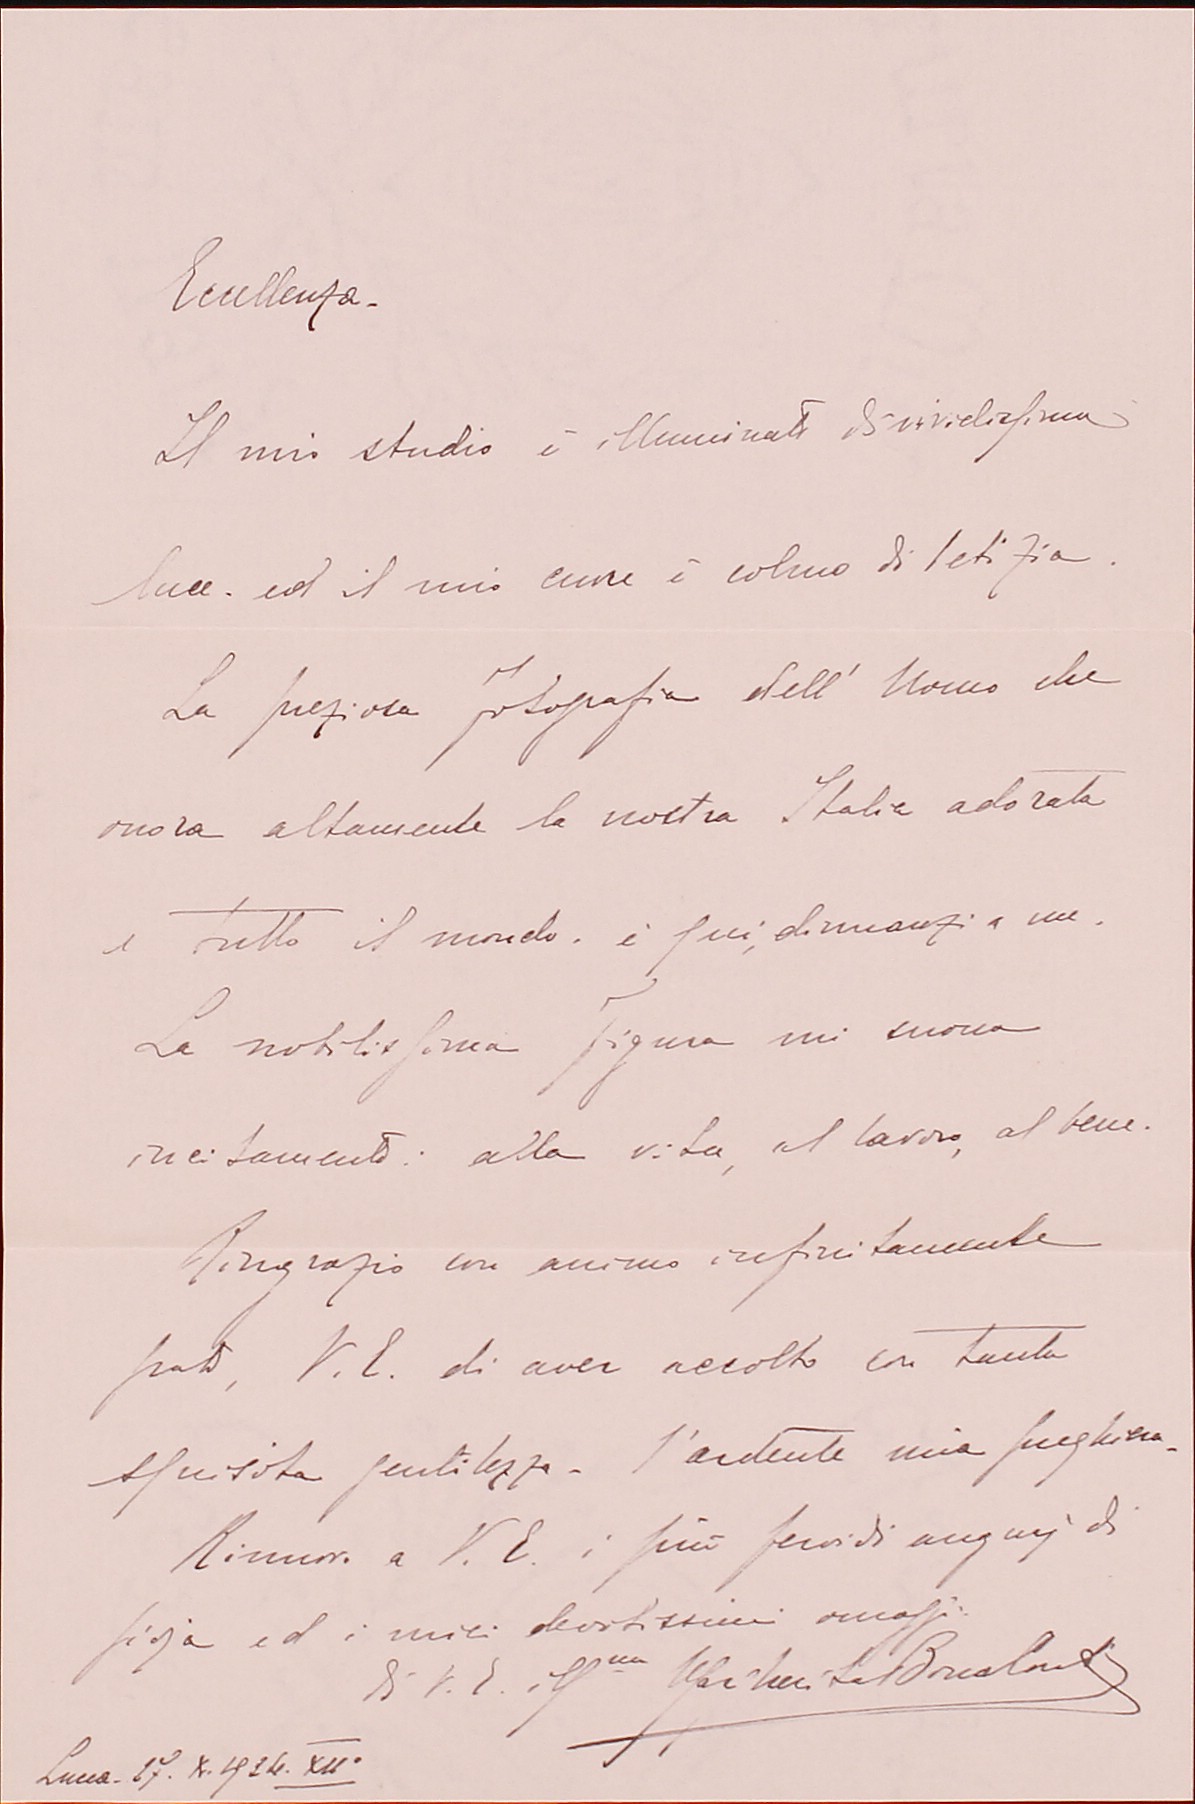 Eccellenza -
Il mio studio è illuminato di vividissima
luce. ed il mio cuore è colmo di letizia.
La preziosa fotografia dell' Uomo che
onora altamente la nostra Italia adorata
e tutto il mondo. è qui, dinnanzi a me.
La nobilissima figura mi suona
incitamento: alla vita, al lavoro, al bene.
Ringrazio con animo infinitamente
grato, V. E. di aver accolto con tanta
squisita gentilezza - l'ardente mia preghiera -
Rinnovo a V. E. i più fervidi augurj di
gioja ed i miei devotissimi omaggi.
di V. E. Ill<sup>ma</sup> Margherita
Lucca - 27. X. 1934. XII°